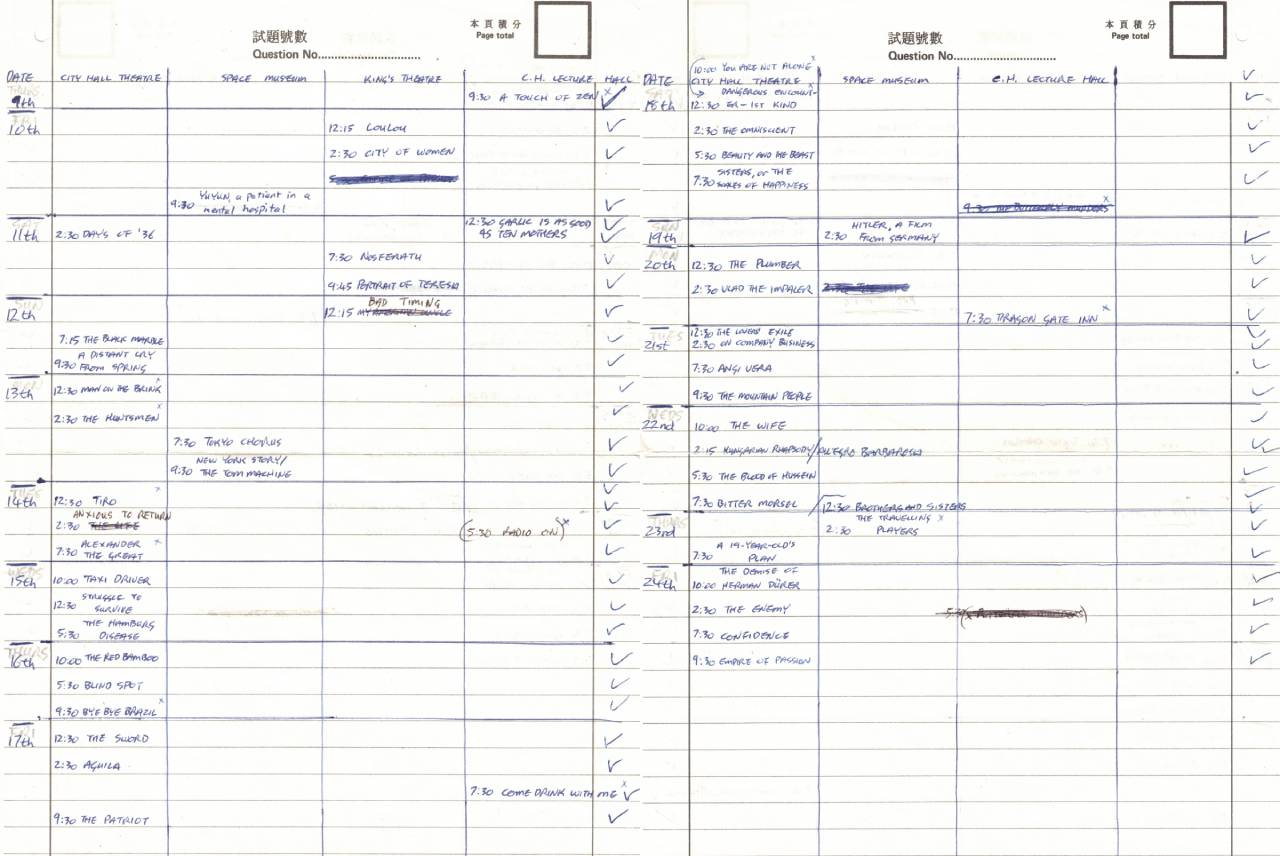 試題號數
本頁積分
Question No.
Page total
DATE CITY HALL THEATRE SPACE MUSEUM KING'S THEATRE C.H. LECTURE HALL
THURS
9th 9:30 A TOUCH OF ZEN x
FRI
10th 12:15 LOULOU
2:30 CITY OF WOMEN
YUYUN, a patient in a
9:30 mental hospital
SAT
12:30 GARLIC IS AS GOOD
11th 2:30 DAYS OF '36 AS TEN MOTHERS
7:30 NOSFERATU
9:45 PORTRAIT OF TERESA
SUN
BAD TIMING
12th 12:15 MY AMERICAN UNCLE
7:15 THE BLACK MARBLE
A DISTANT CRY
9:30 FROM SPRING
MON
13th 12:30 MAN ON THE BRINK x
2:30 THE HUNTSMEN x
7:30 TOKYO CHORUS
NEW YORK STORY/
9:30 THE TOM MACHINE
TUES
14th 12:30 TIRO x
ANXIOUS TO RETURN
2:30 THE WIFE (5:30 RADIO ON) x
ALEXANDER x
7:30 THE GREAT
WEDS
15th 10:00 TAXI DRIVER
STRUGGLE TO
12:30 SURVIVE
THE HAMBURG
5:30 DISEASE
THURS
16th 10:00 THE RED BAMBOO
5:30 BLIND SPOT
9:30 BYE BYE BRAZIL x
FRI
17th 12:30 THE SWORD
2:30 AQUILA
7:30 COME DRINK WITH ME x
9:30 THE PATRIOT
試題號數
本頁積分
Question No.
Page total
10:00 YOU ARE NOT ALONE x
DATE CITY HALL THEATRE SPACE MUSEUM C.H. LECTURE HALL
SAT
DANGEROUS ENCOUNT- x
18th 12:30 ER-1ST KIND
2:30 THE OMNISCIENT
5:30 BEAUTY AND THE BEAST
SISTERS, OR THE
7:30 SCALES OF HAPPINESS
9:30 THE BUTTERFLY MURDERS x
SUN
HITLER, A FILM
19th 2:30 FROM GERMANY
MON
20th 12:30 THE PLUMBER
2:30 VLAD THE IMPALER
7:30 DRAGON GATE INN x
TUES
12:30 THE LOVERS' EXILE
21st 2:30 ON COMPANY BUSINESS
7:30 ANGI VERA
9:30 THE MOUNTAIN PEOPLE
WEDS
22nd 10:00 THE WIFE
2:15 HUNGARIAN RHAPSODY/ALLEGRO BARBARO
5:30 THE BLOOD OF HUSSEIN
7:30 BITTER MORSEL
12:30 BROTHERS AND SISTERS
THURS
THE TRAVELLING x
23rd 2:30 PLAYERS
A 19-YEAR-OLD'S
7:30 PLAN
FRI
THE DEMISE OF
24th 10:00 HERMAN DÜRER
2:30 THE ENEMY
7:30 CONFIDENCE
9:30 EMPIRE OF PASSION